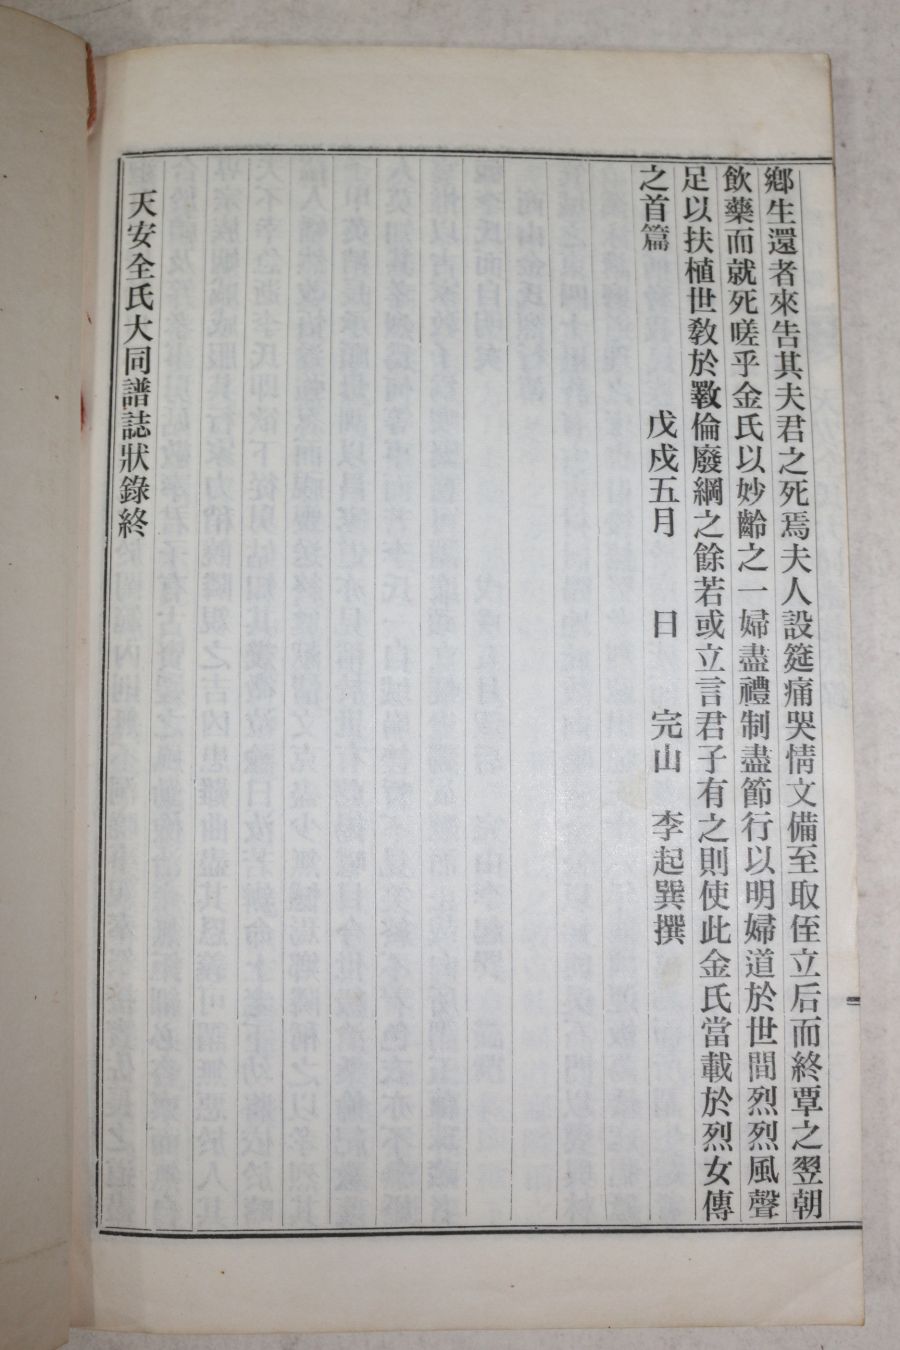 鄕生還者來告其夫君之死焉夫人設筵痛哭情文備至取侄立后而終覃之翌朝
飮藥而就死嗟乎金氏以妙齡之一婦盡禮制盡節行以明婦道於世間烈烈風聲
足以扶植世敎於斁倫廢綱之餘若或立言君子有之則使此金氏當載於烈女傳
之首篇
戊戌五月 日 完山 李起巽撰
天安全氏大同譜誌狀錄終